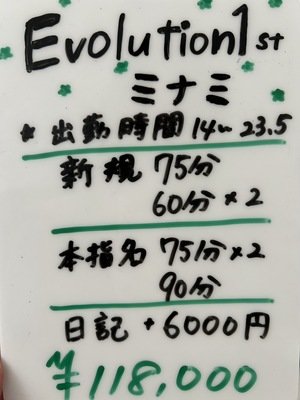 Evolution1st
ミナミ
* 出勤時間 14~23.5
新規 75分
60分×2
本指名 75分×2
90分
日記 +6000円
¥118,000